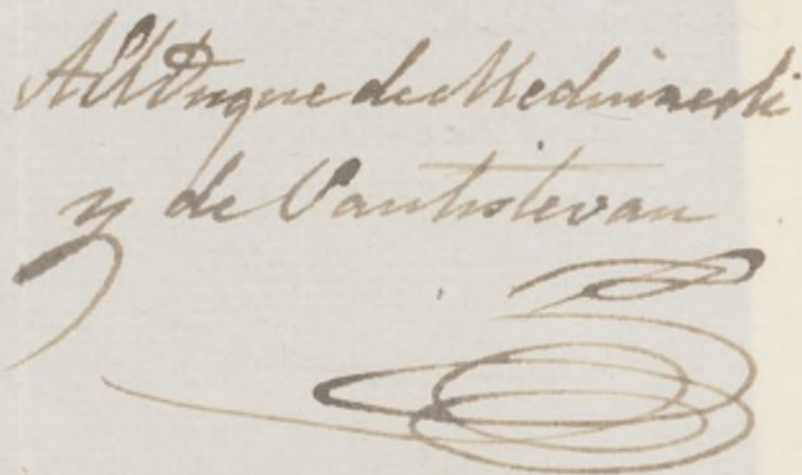 El Duque de Medinaceli
y de Santistevan